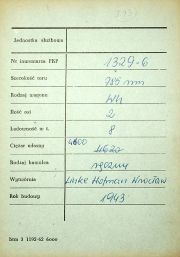 Jednostka służbowa
Nr inwentarza PKP 1329-6
Szerokość toru 785 mm
Rodzaj wagonu Wh
Ilość osi 2
Ładowność w t. 8
Ciężar własny 4600
Rodzaj hamulca ręczny
Wytwórnia Linke Hofman Wrocław
Rok budowy 1943